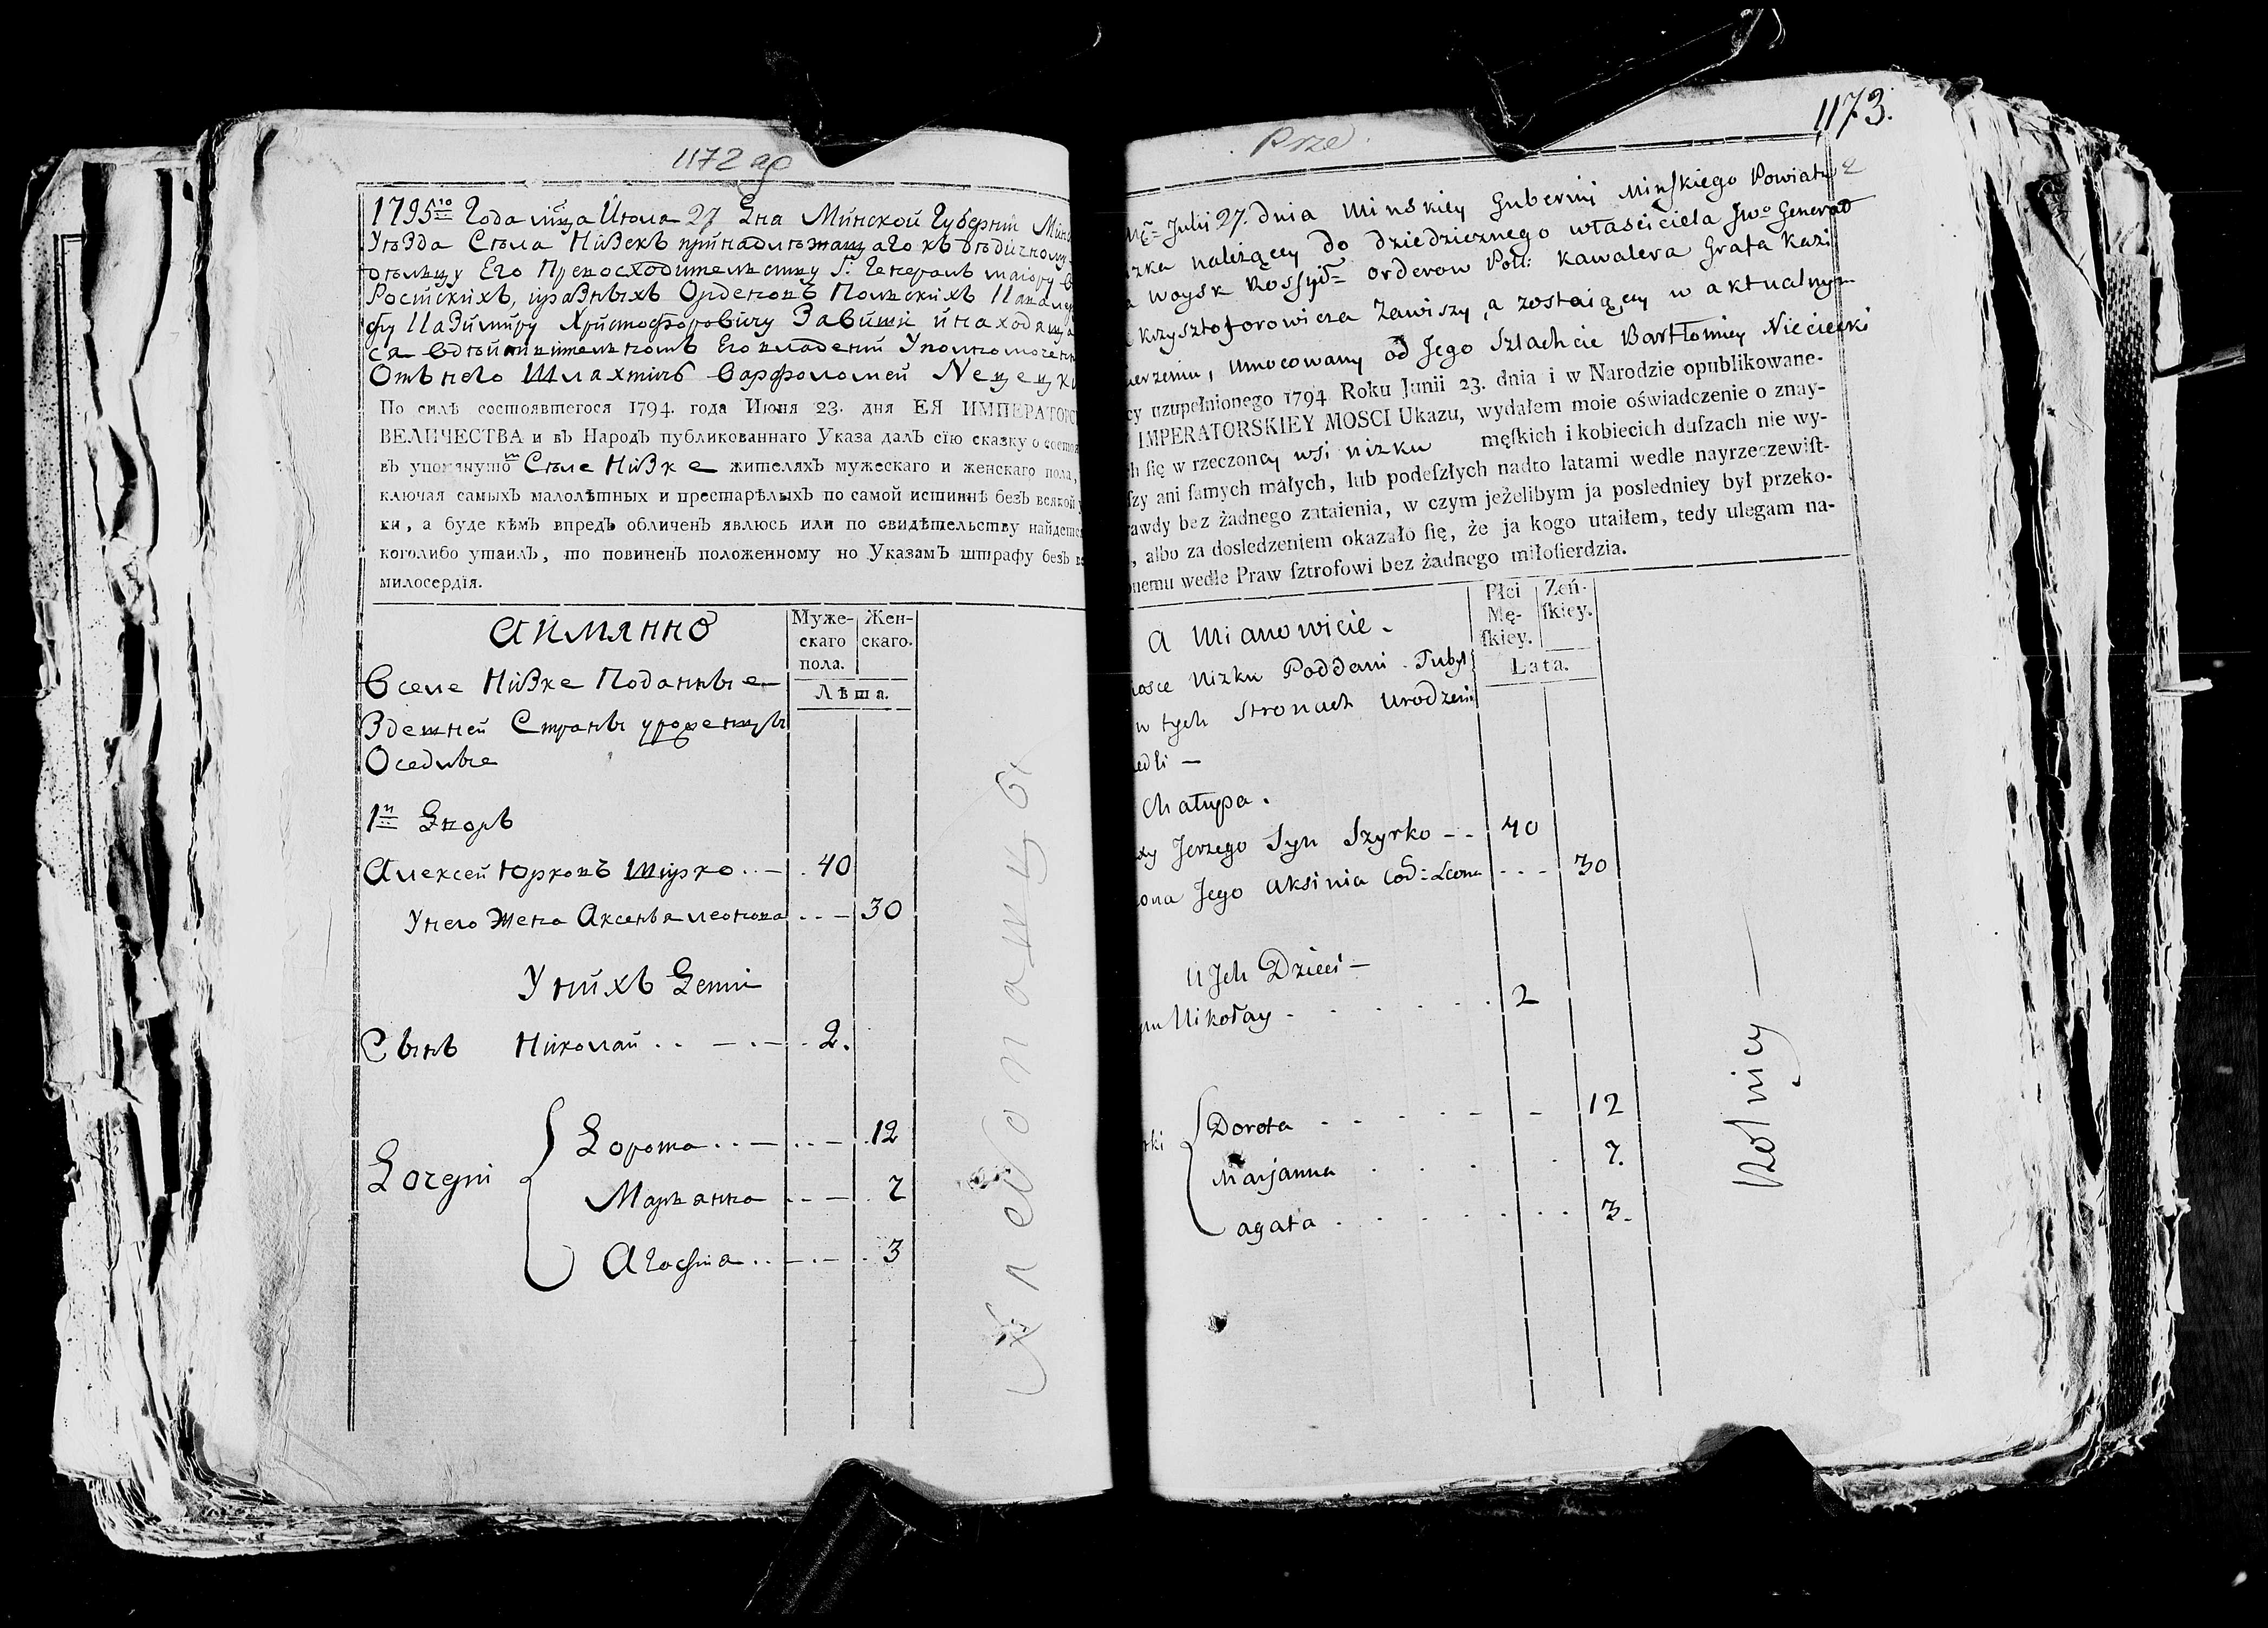 1172 об
1795го Года мца Июля 27 Дня Минской Губернии Мин
Уезда Села Низекъ принадлежащаго къ дедичному
дельцу Его Превосходительству Гⁿ Генералъ маiору в
Россiскихъ, иразныхъ Орденовъ Польскихъ Кавале
фу Казимиру Христофоровичу Завиши инаходяща
ся вдействительномъ Его владенiи Уполномоченн
Отъ него Шляхтичь Варфоломей Нецецки
По силѣ состоявшегося 1794. года Июня 23. дня ЕЯ ИМПЕРАТОРС
ВЕЛИЧЕСТВА и въ Народъ публикованнаго Указа далъ сїю сказку о состоя
въ упомянутомъ Селе Низке жителяхъ мужескаго и женскаго пола,
ключая самыхъ малолѣтныхъ и престарѣлыхъ по самой истиннѣ безъ всякой у
ки, а буде кѣмъ впредъ обличенъ явлюсь или по свидѣтельству найдетс
коголибо утаилъ, то повиненъ положенному по Указамъ штрафу безъ в
милосердїя.
Аимянно
Муже-скаго пола.
Жен-скаго.
Лѣта.
Вселе Низке Поданные
Здешней Страны уроженцы
Оседлые
1й Дворъ
Алексей Юрковъ Ширко 40
Унего Жена Аксенья леонова 30
Унихъ Дети
Сынъ Николай 2.
Дочери
Дорота 12
Марьянна 7
Агафия 3
Хлебопашцы
Prze
1173.
Mca Julii 27. dnia Minskiey Gubernij Minskiego Powiatu
zka należącey do dziedzicznego właściciela Jwo Generał
a woysk Rossyis= orderow Pol: Kawalera Grafa Kazi
Krzysztoforowicza Zawiszy, a zostaiącey w aktualnym
ierzeniu, Umocowany od Jego Szlachcic Bartłomiey Nieciecki
cy uzupełnionego 1794 Roku Junii 23. dnia i w Narodzie opublikowane-
IMPERATORSKIEY MOSCI Ukazu, wydałem moie oświadczenie o znay-
h ſię w rzeczoney wsi nizku męſkich i kobiecich duſzach nie wy-
ſzy ani ſamych małych, lub podeſzłych nadto latami wedle nayrzeczewiſt-
awdy bez żadnego zataienia, w czym jeżelibym ja posledniey był przeko-
, albo za dosledzeniem okazało ſię, że ja kogo utaiłem, tedy ulegam na-
onemu wedle Praw ſztrofowi bez żadnego miłoſierdzia.
A Mianowicie.
Płci Mę-ſkiey.
Zeń-ſkiey.
Lata.
osce Nizku Poddani Tubyl
w tych Stronach Urodzeni
edli —
Chałupa.
xy Jerzego Syn Szyrko 40
ona Jego Aksinia Cod: Leona 30
U Jch Dzieci —
yn Nikołay 2
rki
Dorota 12
Maryanna 7.
agata 3.
Rolnicy